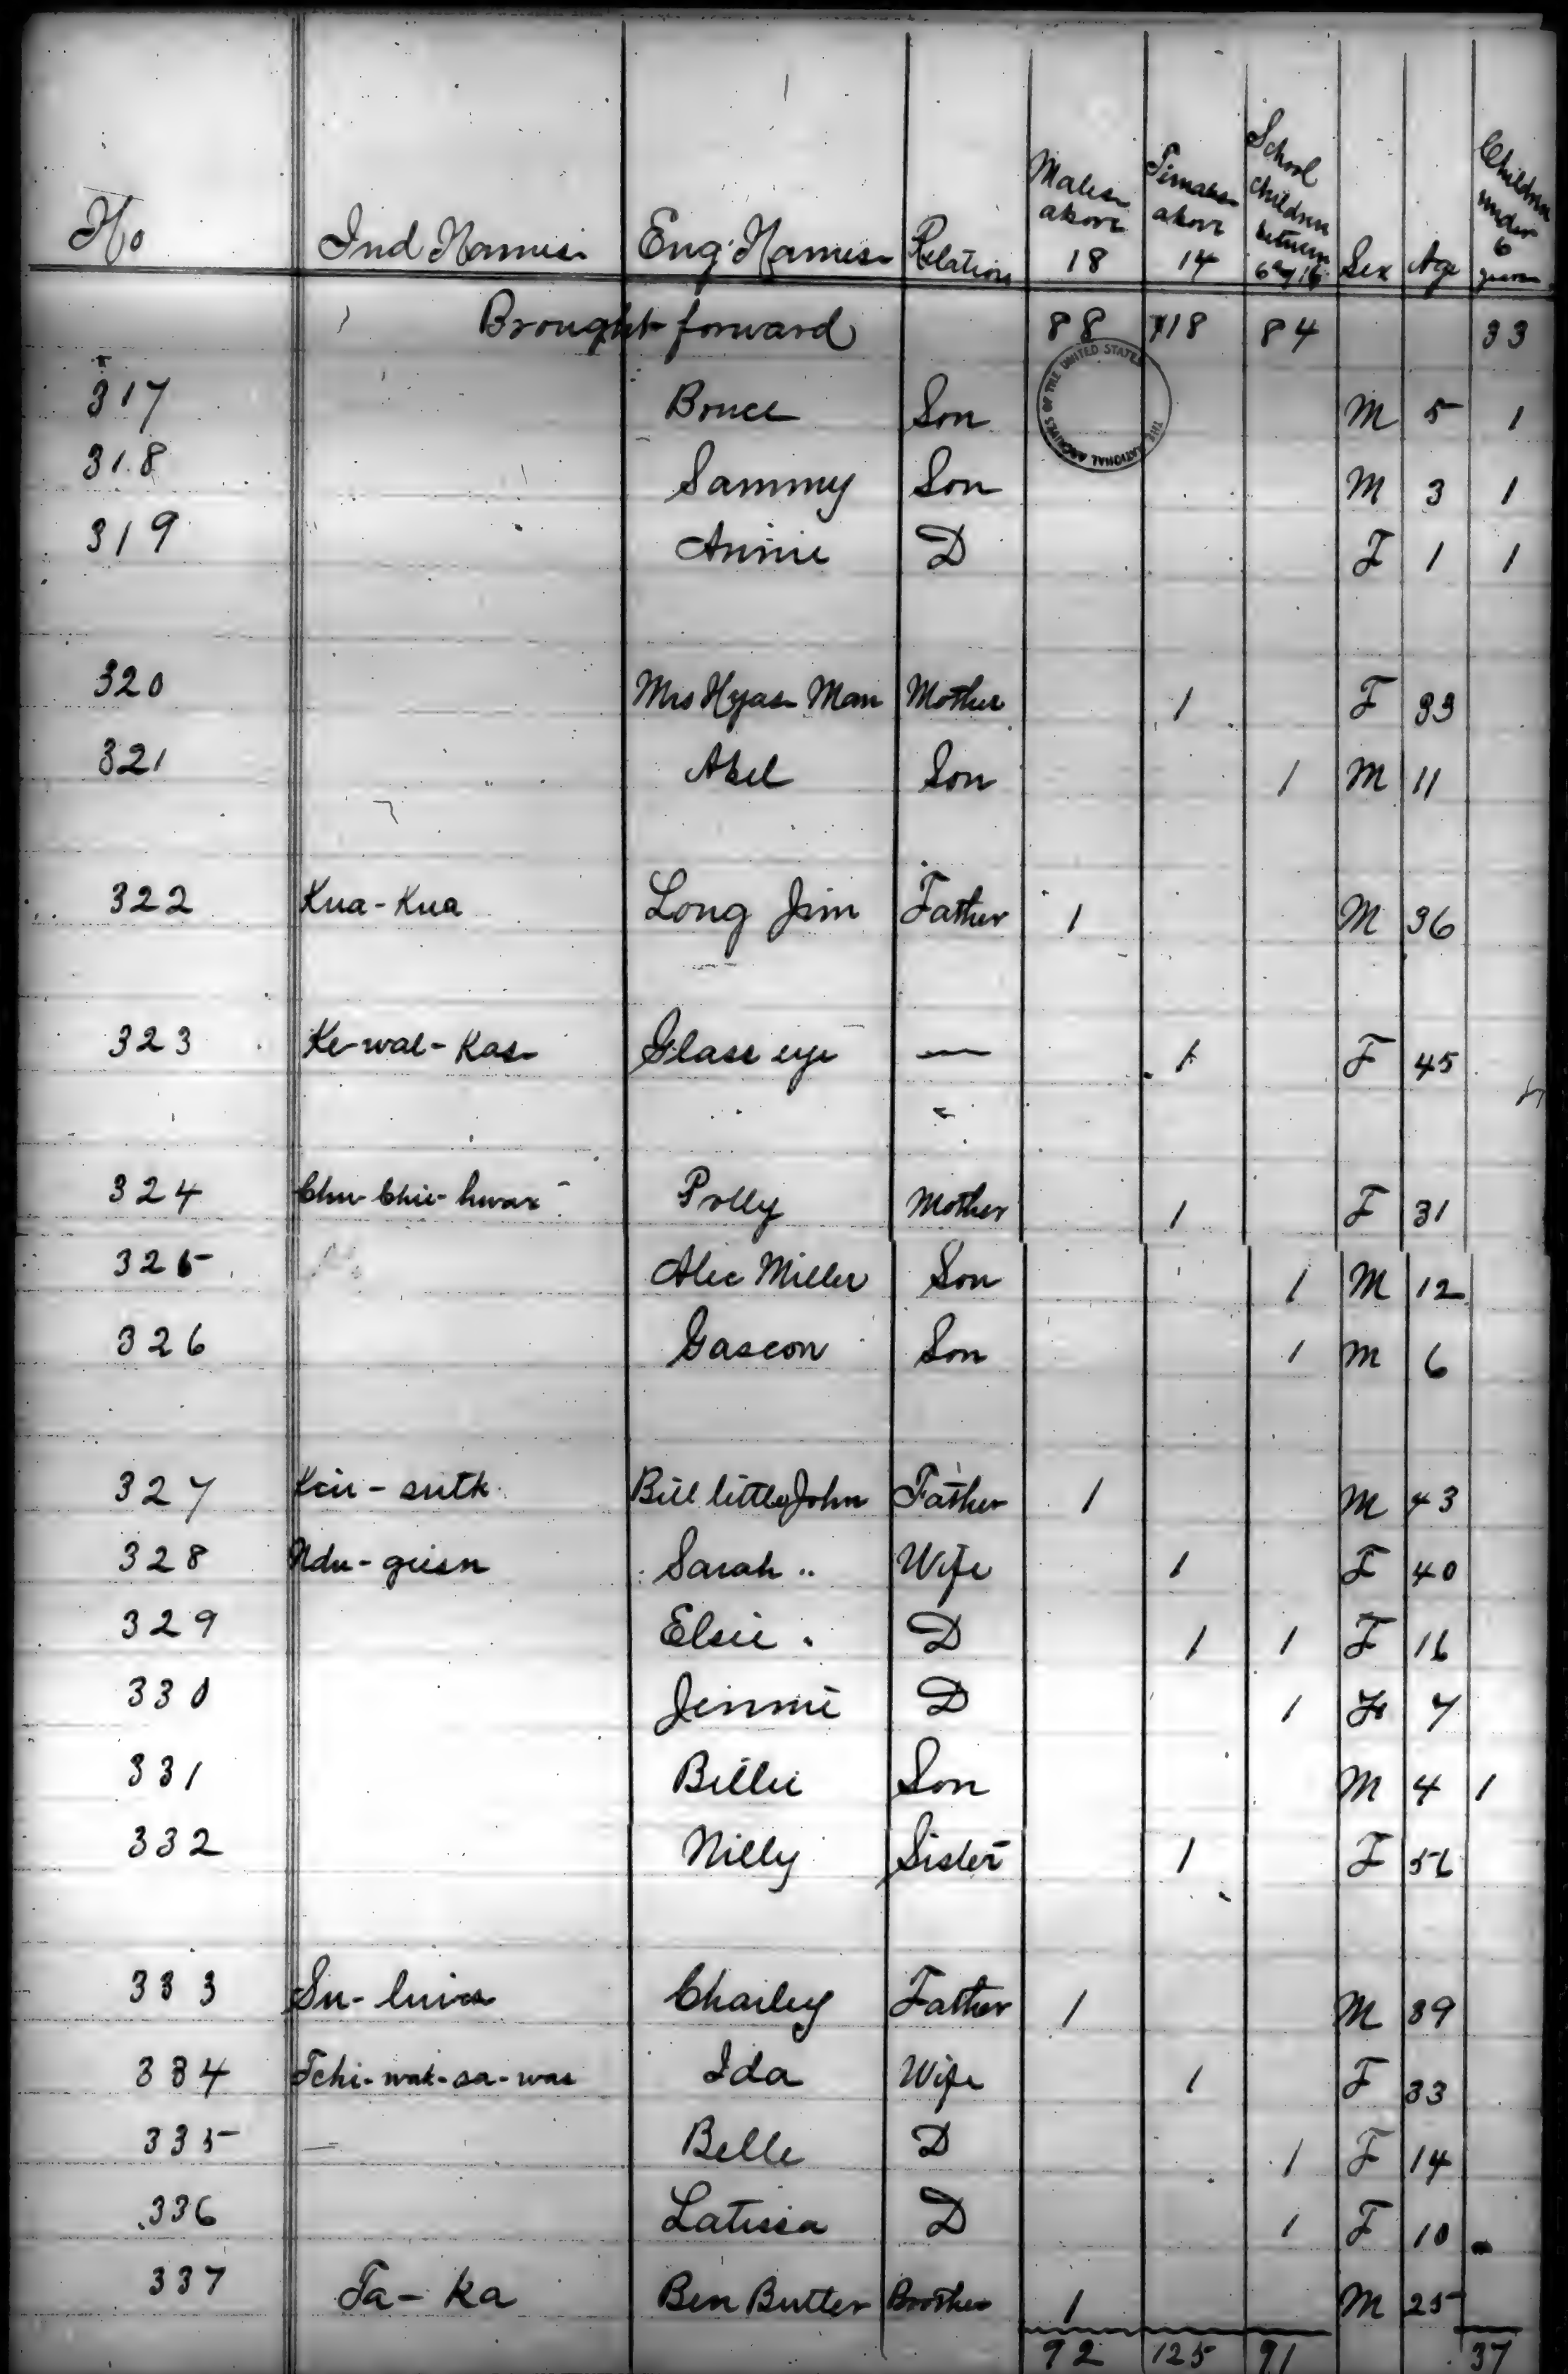 No Ind Names Eng Names Relation Males above 18 Females above 14 School children between 6 & 16 Sex Age Children under 6 years
Brought forward 88 118 84 33
THE NATIONAL ARCHIVES OF THE UNITED STATES
317 Bruce Son M 5 1
318 Sammy Son M 3 1
319 Annie D F 1 1
320 Mrs Hyas Man Mother 1 F 33
321 Abel Son 1 M 11
322 Kua-Kua Long Jim Father 1 M 36
323 Ke-wal-Kas Glass eye — 1 F 45
324 Polly Mother 1 F 31
325 Alec Miller Son 1 M 12
326 Gascon Son 1 M 6
327 Bill little John Father 1 M 43
328 Sarah " Wife 1 F 40
329 Elsie " D 1 1 F 16
330 Jennie D 1 F 7
331 Billie Son M 4 1
332 Nilly Sister 1 F 56
333 Charley Father 1 M 39
334 Tchi-wak-sa-was Ida Wife 1 F 33
335 — Belle D 1 F 14
336 Latissa D 1 F 10
337 Ta-ka Ben Butter Brother 1 M 25
92 125 91 37